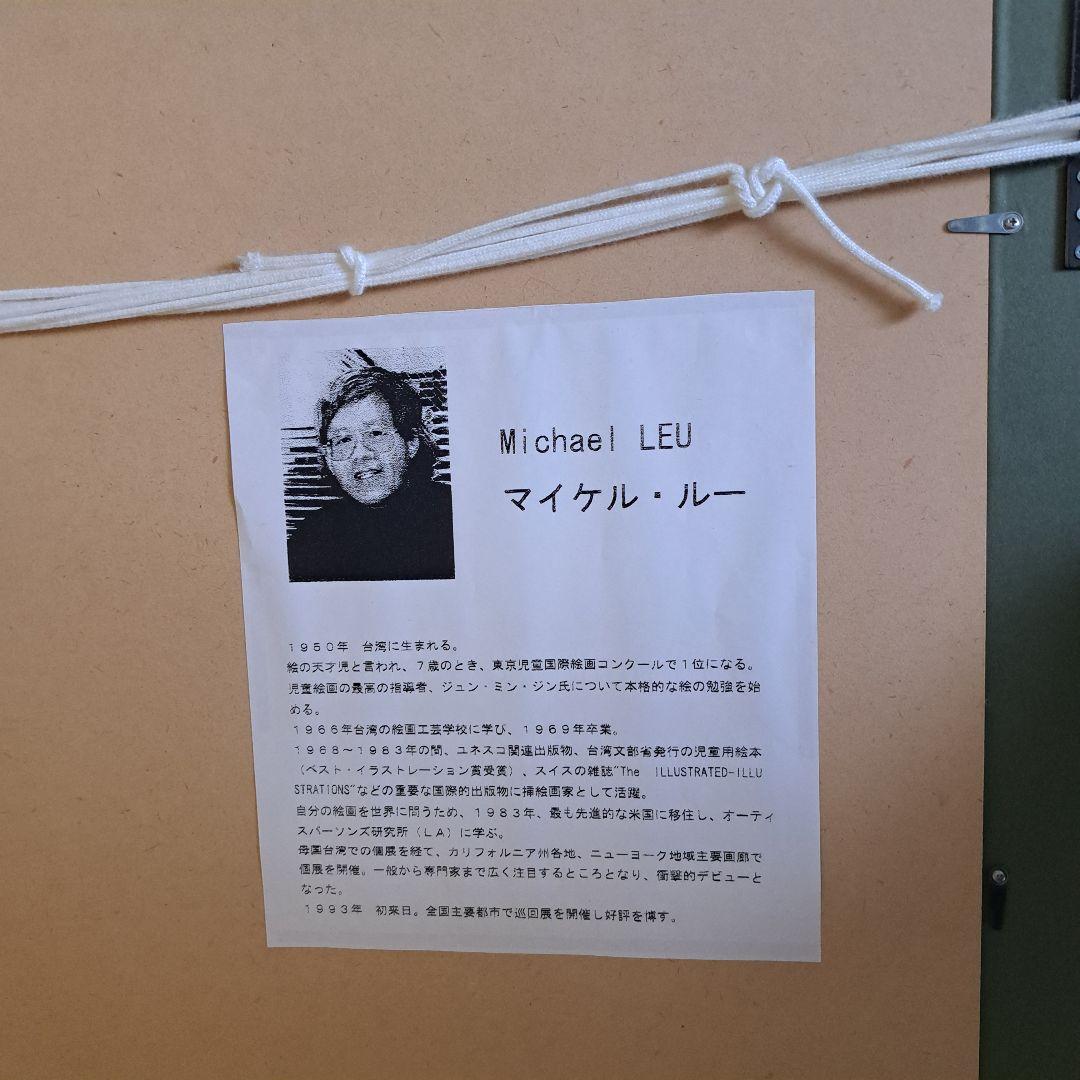 Michael LEU
マイケル・ルー
1950年 台湾に生まれる。
絵の天才児と言われ、7歳のとき、東京児童国際絵画コンクールで1位になる。
児童絵画の最高の指導者、ジュン・ミン・ジン氏について本格的な絵の勉強を始
める。
1966年台湾の絵画工芸学校に学び、1969年卒業。
1968～1983年の間、ユネスコ関連出版物、台湾文部省発行の児童用絵本
(ベスト・イラストレーション賞受賞)、スイスの雑誌"The ILLUSTRATED-ILLU
STRATIONS"などの重要な国際的出版物に挿絵画家として活躍。
自分の絵画を世界に問うため、1983年、最も先進的な米国に移住し、オーティ
スパーソンズ研究所(LA)に学ぶ。
母国台湾での個展を経て、カリフォルニア州各地、ニューヨーク地域主要画廊で
個展を開催。一般から専門家まで広く注目するところとなり、衝撃的デビューと
なった。
1993年 初来日。全国主要都市で巡回展を開催し好評を博す。